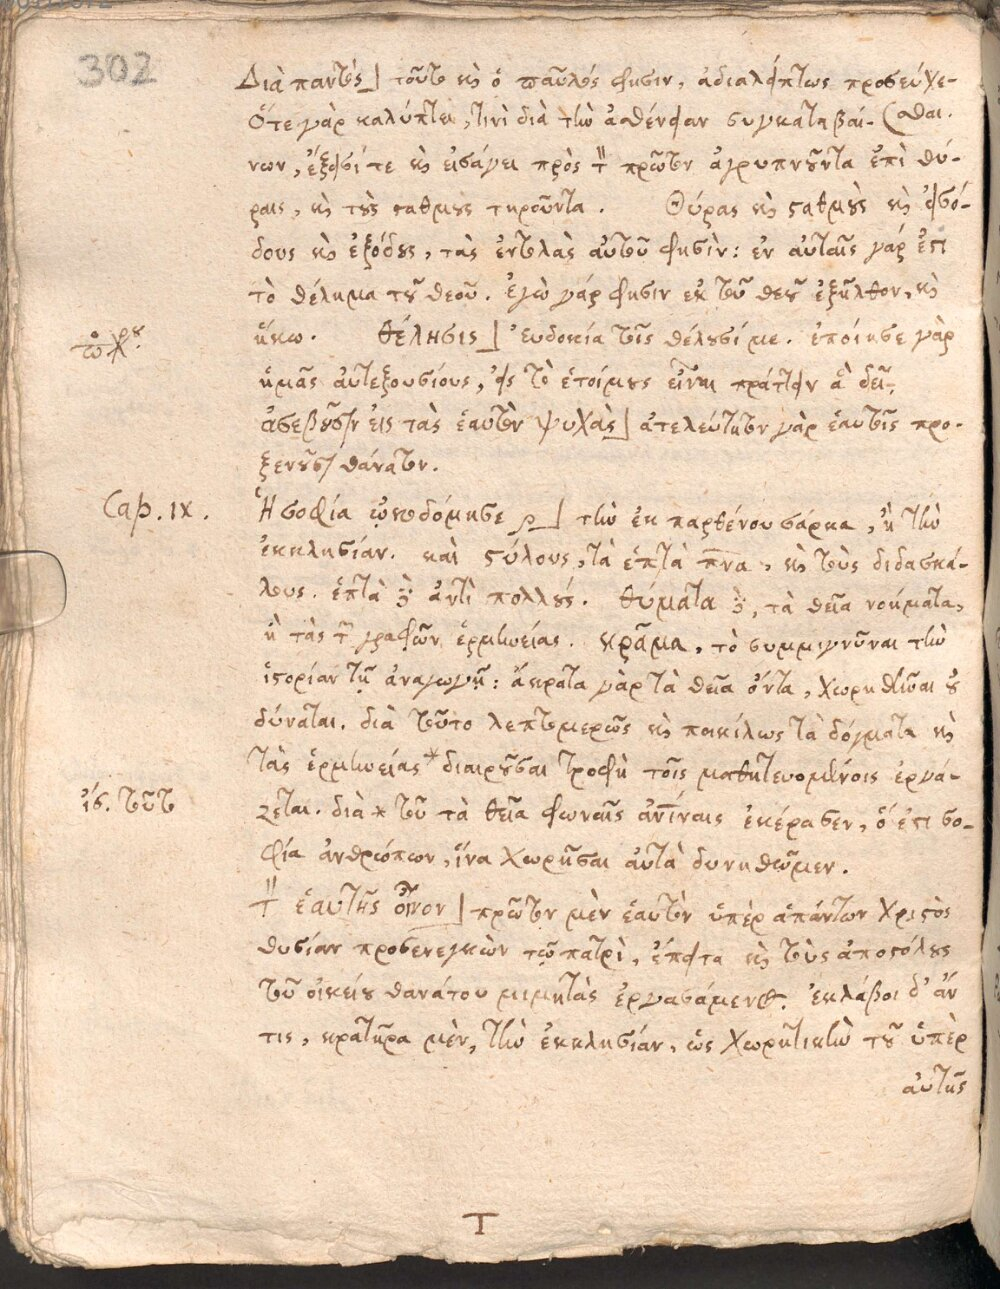 302
Διὰ παντός] τοῦτο κὶ ὁ παῦλός φησιν, ἀδιαλείπτως προσεύχε-
(σθαι.
Ὅτε γὰρ καλύπτει, τινὶ διὰ τὴν ἀσθένειαν συγκαταβαί-
νων, ἔξεισί τε κὶ εἰσάγει πρὸς τ̀ πρῶτον ἀγρυπνοῦντα ἐπὶ θύ-
ραις, κὶ τοὺς σταθμοὺς τηροῦντα. Θύρας κὶ σταθμοὺς κὶ εἰσό-
δους κὶ ἐξόδους, τὰς ἐντολὰς αὐτοῦ φησίν: ἐν αὐταῖς γάρ ἐστι
τὸ θέλημα τοῦ θεοῦ. ἐγὼ γάρ φησιν ἐκ τοῦ θεοῦ ἐξῆλθον, κὶ
ἥκω. θέλησις] εὐδοκία τῆς θελήσε. ἐποίησε γὰρ
ἡμᾶς αὐτεξουσίους, εἰς τὸ ἑτοίμους εἶναι πράττειν ἃ δεῖ.
ἀσεβοῦσιν εἰς τὰς ἑαυτῶν ψυχὰς] ἀτελεύτητον γὰρ ἑαυτοῖς προ-
ξενοῦσι θάνατον.
Cap. IX.
Ἡ σοφία ᾠκοδόμησε] τὴν ἐκ παρθένου σάρκα, ἢ τὴν
ἐκκλησίαν. καὶ στύλους, τὰ ἑπτὰ πν̅α̅, κὶ τοὺς διδασκά-
λους. ἑπτὰ δὲ ἀντὶ πολλούς. θύματα δὲ, τὰ θεῖα νοήματα,
ἢ τὰς τῶν γραφῶν ἑρμηνείας. κρᾶμα, τὸ συμμιγνῦναι τὴν
ἱστορίαν τῇ ἀναγωγῇ: ἄκρατα γὰρ τὰ θεῖα ὄντα, χωρηθῆναι οὐ
δύναται. διὰ τοῦτο λεπτομερῶς κὶ ποικίλως τὰ δόγματα κὶ
τὰς ἑρμηνείας * διαιροῦσαι τροφὴ τοῖς μαθητευομένοις ἐργά-
ἴσ. τοῦτο
ζεται. διὰ * τοῦ τὰ θεῖα φωναῖς ἀν̅ίναις ἐκέρασεν, ὅ ἐστι σο-
φία ἀνθρώπων, ἵνα χωρῆσαι αὐτὰ δυνηθῶμεν.
τ̀ ἑαυτῆς οἶνον] πρῶτον μὲν ἑαυτὸν ὑπὲρ ἁπάντων Χριστὸς
θυσίαν προσενεγκὼν τῷ πατρὶ, ἔπειτα κὶ τοὺς ἀποστόλους
τοῦ οἰκείου θανάτου μιμητὰς ἐργασάμενος. ἐκλάβοι δ' ἄν
τις, κρατῆρα μὲν, τὴν ἐκκλησίαν, ὡς χωρητικὴν τοῦ ὑπὲρ
αὐτῆς
T